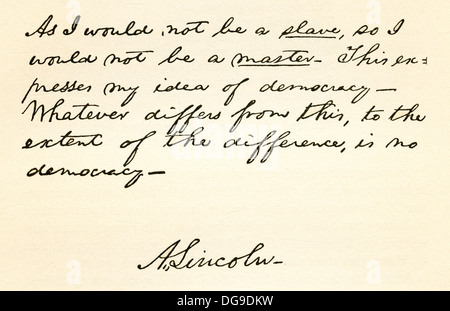 As I would not be a slave, so I
would not be a master – This ex=
presses my idea of democracy –
Whatever differs from this, to the
extent of the difference, is no
democracy –
A. Lincoln –
alamy
Image ID: DG9DKW
www.alamy.com